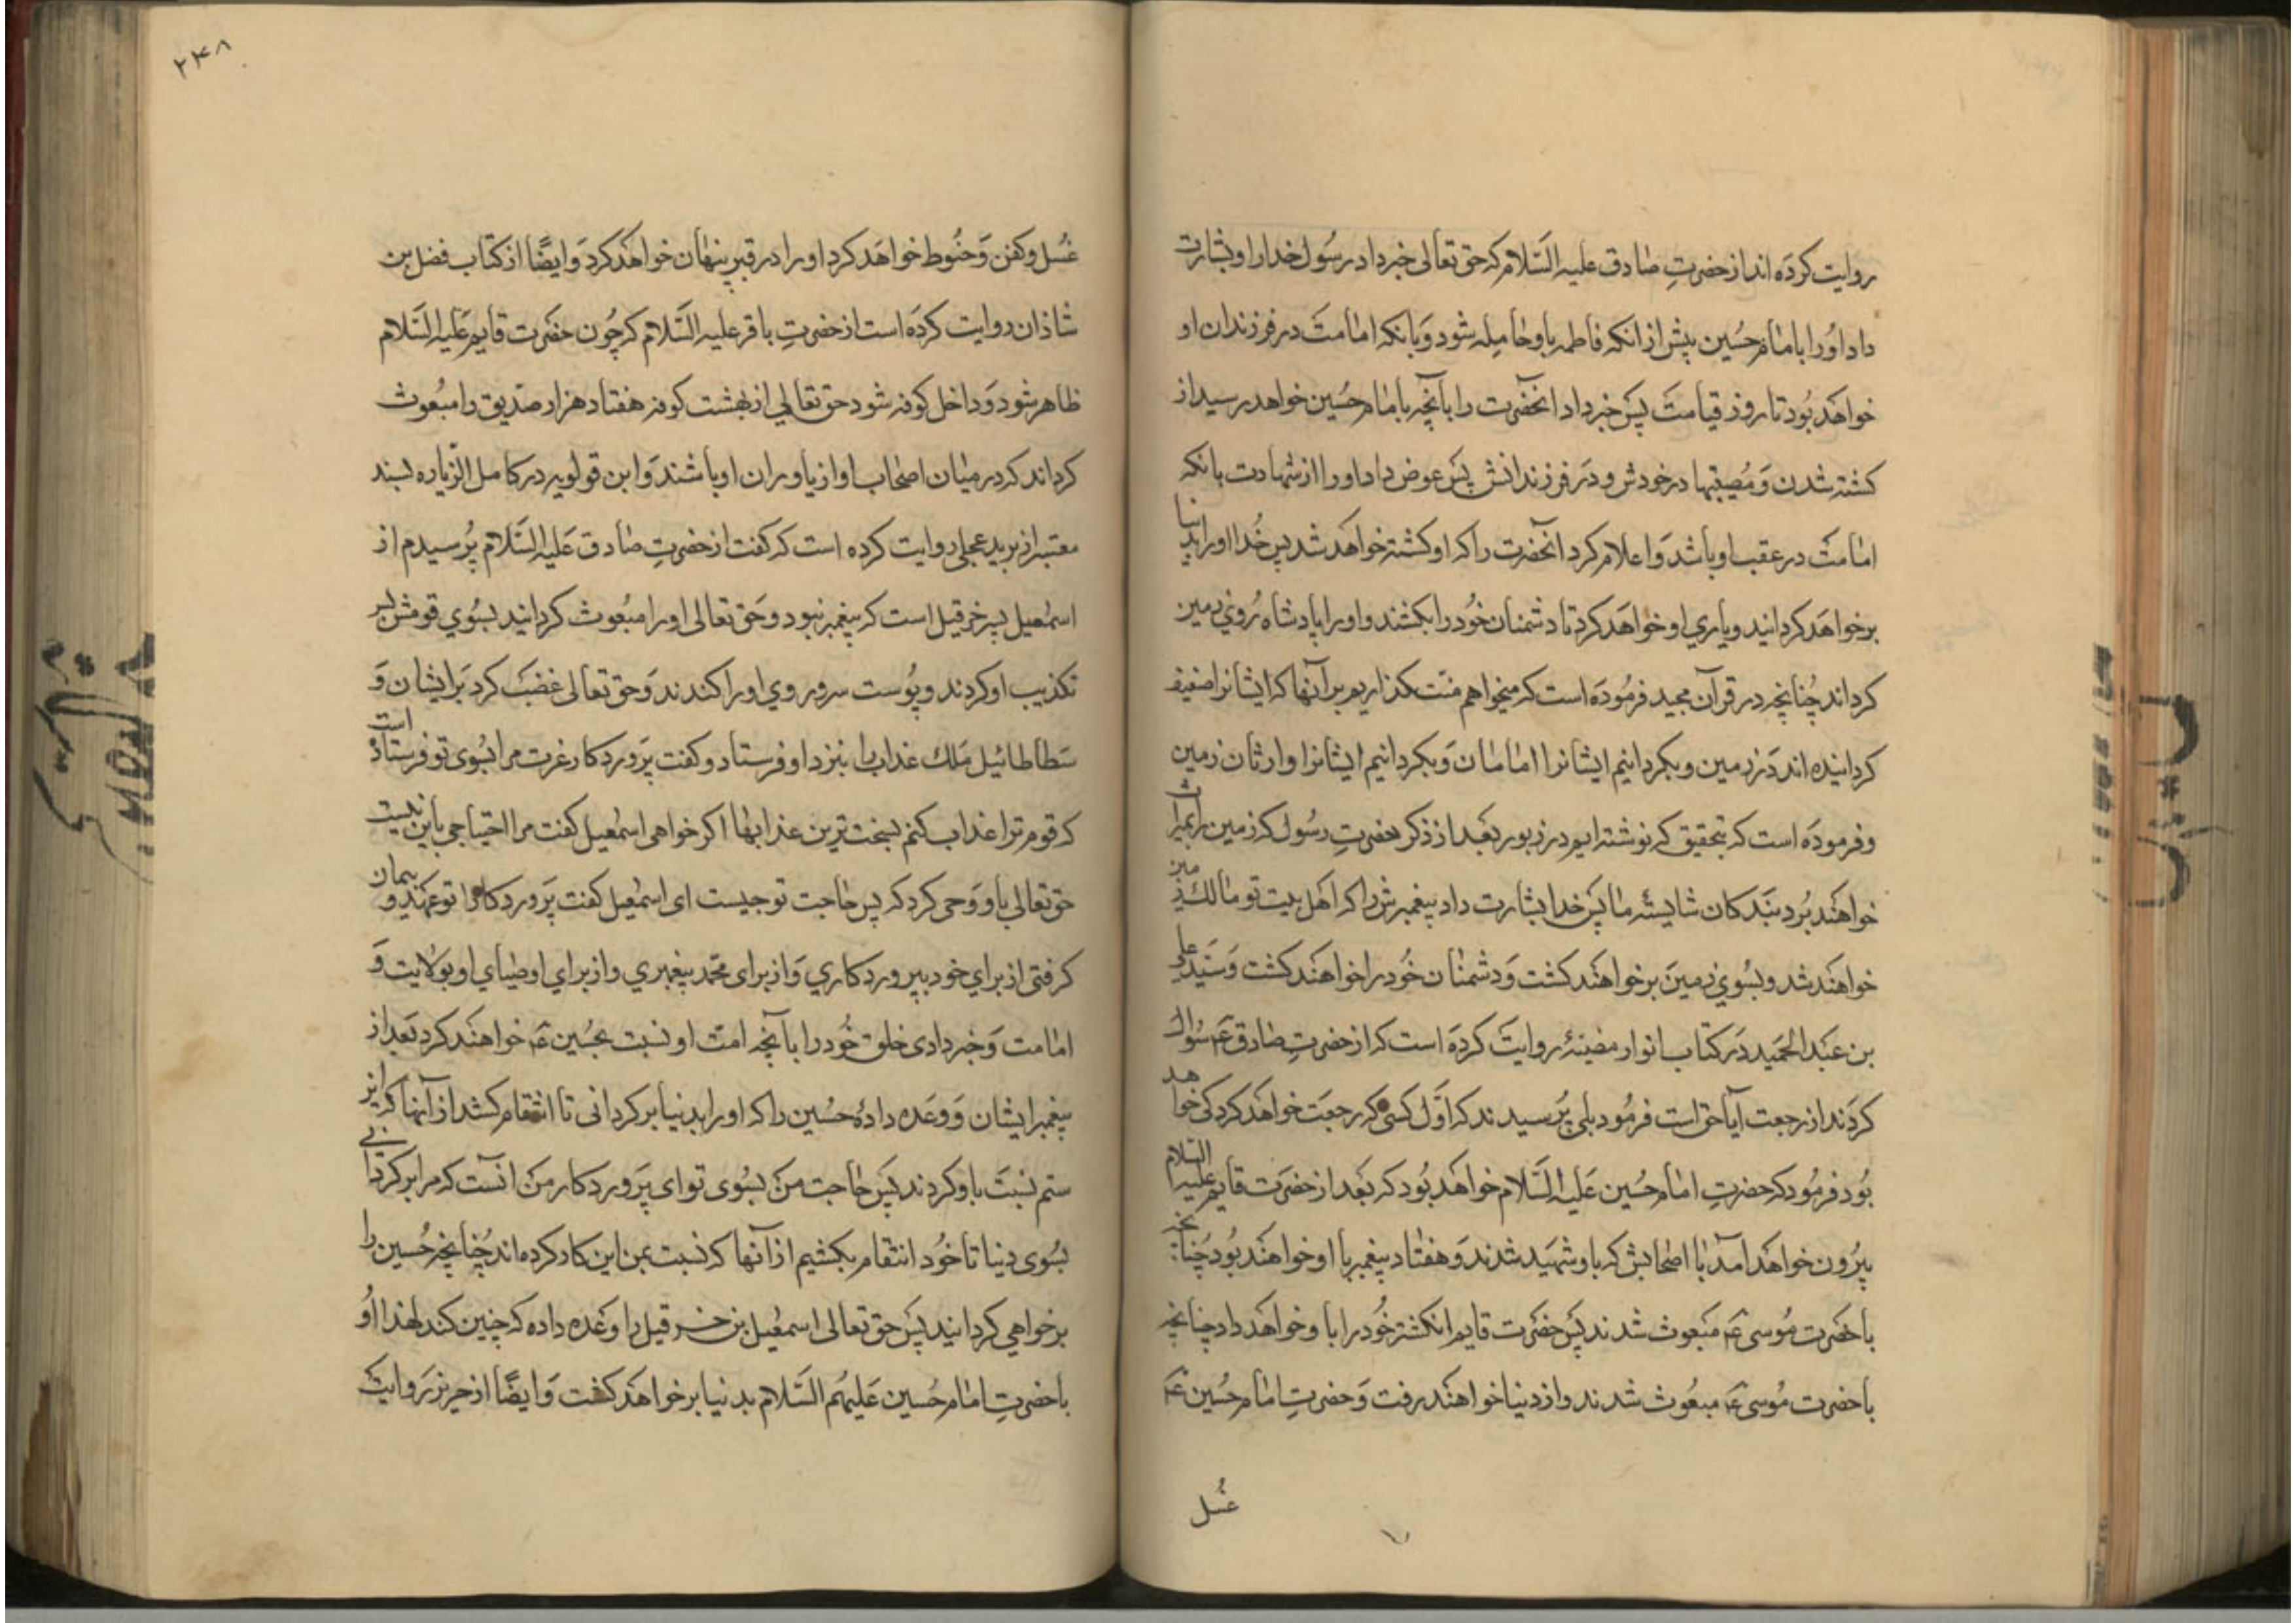 روایت کرده اند از حضرتِ صادق علیه السّلام که حق تعالی خبر داد رسُول خدا را و بشارت
داد اوُرا بامام حسُین پیش از انکه فاطمه باو حامِله شود وَبانکه امامتَ در فرزندان او
خواهَد بُود تا روز قیامت پسَ خبر داد انحضَرت را بآنچه بامام حسُین خواهد رسید از
کشته شدن وَمُصیبتها در خودش و دَر فرزندانش پسَ عوض داد اورا از شهادت بانکه
امامتَ در عقب او باشد وَاعلام کرد آنحضرت را که او کشته خواهَد شد پس خُدا اورا بدنیا
بر خواهَد کردانید و یاری او خواهَد کرد تا دشمنان خُود را بکشند و اورا پادشاه رُوی زمین
کرداند چُنانچه در قرآن مجید فرمُوده است که میخواهم منّت بکذاریم بر آنها که ایشانرا ضعیف
کردانیده اند دَر زمین و بکردانیم ایشانرا امامان وَبکردانیم ایشانرا وارثان زمین
و فرموده است که بتحقیق که نوشته ایم در زبور بَعد از ذکر حضرتِ رسُول که زمین را بمیراث
خواهَند بُرد بنَدکان شایستهٔ ما پسَ خدا بشارت داد پیغمبرش را که اهَل بیت تو مالک زمین
خواهَند شد و بسُوی زمینَ بر خواهَند کشت وَدشمنان خُود را خواهَند کشت وَسَیّد علی
بن عبَد الحمَید دَر کتاب انوار مضیئهٔ روایت کردَه است که از حضرتِ صادق ع سُوال
کردَند از رجعت آیا حق است فرمُود بلی پرُسیدند که اوّل کسی که رجعَت خواهَد کرد کی خواهد
بوُد فرمُود که حضرتِ امام حُسین عَلیه السَّلام خواهَد بُود که بعَد از حضرَت قایم علیه السلام
بیرُون خواهَد آمد با اصحابش که باو شهَید شدند وَهفتاد پیغمبر با او خواهَند بُود چُنانچه
با حضَرت مُوسی ع مبَعوث شدند پسَ حضَرت قایم انکشتر خُود را باو خواهَد داد چنانچه
با حضرت مُوسی ع مبعُوث شدند و از دنیا خواهَند رفت وَحضرتِ امام حسُین ع
غسُل
۲۴۸
غسُل و کفن وَحنُوط خواهَد کرد اورا در قبر پنهان خواهَد کرد وَایضًا از کتاب فضل بن
شاذان روایت کردَه است از حضرتِ باقر علیه السَّلام که چُون حضَرت قایم عَلیه السَّلام
ظاهر شود وَداخل کوفه شود حق تعالی از پشت کوفه هفتاد هزار صدّیق را مبُعوث
کرداند که در میان اصحاب او از یاوران او باشند وَابن قولویه در کامل الزّیاره بسند
معتبر از برید عجلی روایت کرده است که کفت از حضرتِ صادق عَلیه السَّلام پرُسیدم از
اسمٰعیل پسر خرقیل است که پیغمبر نبود و حَق تعالی اورا مبُعوث کردانید بسُوی قومش پس
تکذیب او کردند و پوُست سر و روی اورا کندند وَحق تعالی غضَب کرد بَر ایشان وَ
سَطاطائیل مَلک عذاب را بنزد او فرستاد و کفت پَروردکار عزت مرا بسُوی تو فرستاده است
که قوم ترا عذاب کنم بسخت ترین عذابها اکر خواهی اسمٰعیل کفت مرا احتیاجی باین نیست
حق تعالی باو وَحی کرد که پس حاجت تو چیست ای اسمٰعیل کفت پَروردکارا تو عهَد و پیمان
کرفتی از برای خود بپروردکاری وَاز برای محمّد پیغمبری و از برای اوصیای او بولایت وَ
امامت وَخبر دادی خلق خُود را بآنچه امت او نسبت بحسُین ع خواهَند کرد بَعد از
پیغمبر ایشان وَوعَده دادهٔ حسُین را که اورا بدنیا بر کردانی تا انتقام کشد از آنها که این
ستم نسَبت باو کردند پسَ حاجت منَ بسُوی تو ای پَروردکار منَ آنست که مرا بر کردانی
بسُوی دنیا تا خُود انتقام بکشیم از آنها که نسَبت بمن این کار کرده اند چُنانچه حُسین را
بر خواهی کردانید پسَ حق تعالی اسمٰعیل بن خرقیل را وَعَده داده که چنین کند لهذا اوُ
با حضرتِ امام حسُین عَلیهُم السَّلام بدنیا بر خواهَد کشت وَایضًا از حریز رَوایت